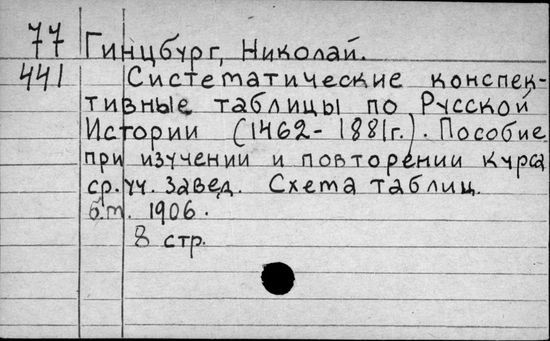 77 Гинцбург, Николай.
441 Систематические конспек-
тивные таблицы по Русской
Истории (1462-1881г.). Пособие
при изучении и повторении курса
ср. уч. завед. Схема таблиц.
б.т. 1906.
8 стр.